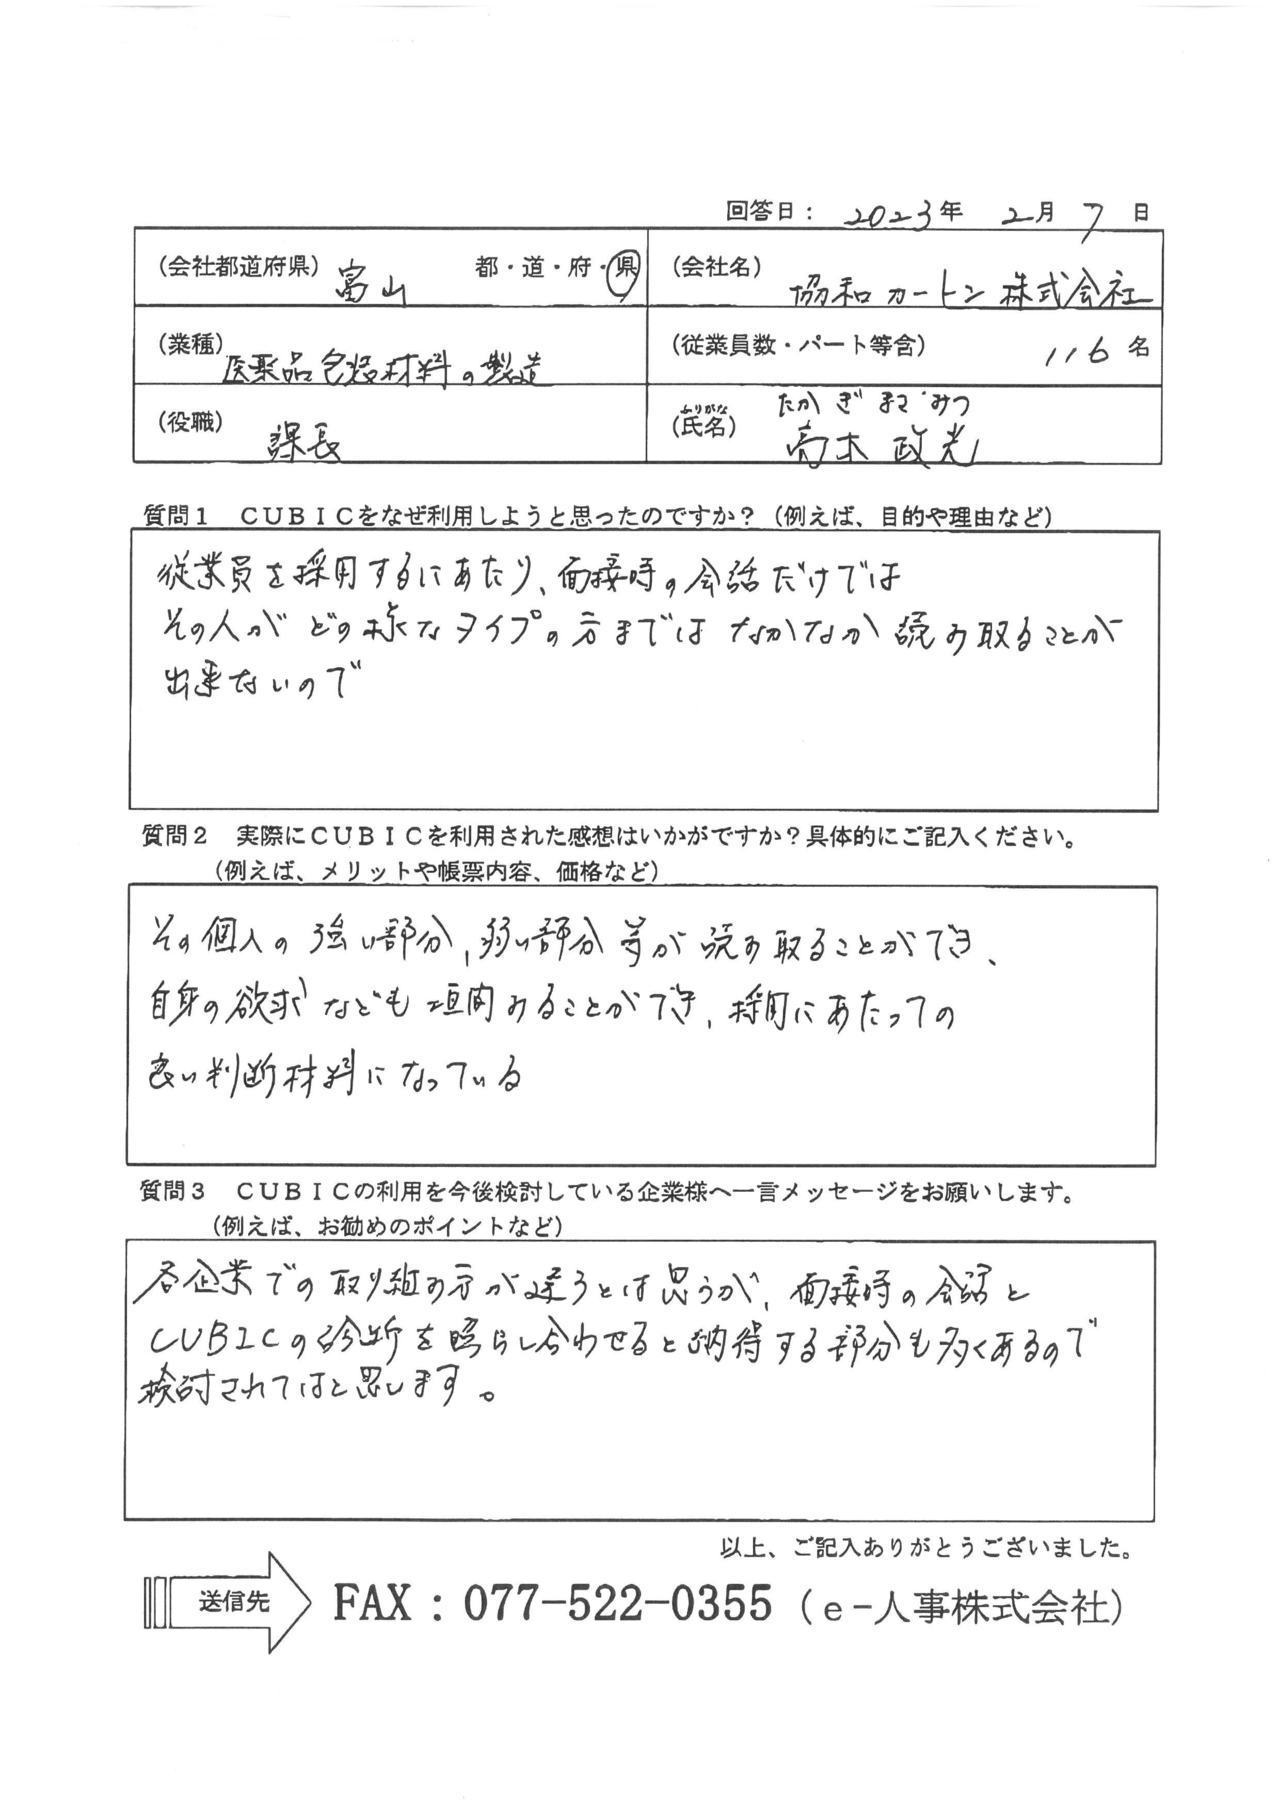 回答日： 2023年 2月 7日
（会社都道府県） 富山 都・道・府・県
（会社名） 協和カートン株式会社
（業種） 医薬品包装材料の製造
（従業員数・パート等含） 116名
（役職） 課長
ふりがな たかぎ まさみつ
（氏名） 高木 政光
質問１ ＣＵＢＩＣをなぜ利用しようと思ったのですか？（例えば、目的や理由など）
従業員を採用するにあたり、面接時の会話だけでは
その人がどの様なタイプの方まではなかなか読み取ることが
出来ないので
質問２ 実際にＣＵＢＩＣを利用された感想はいかがですか？具体的にご記入ください。
（例えば、メリットや帳票内容、価格など）
その個人の強い部分、弱い部分等が読み取ることができ、
自身の欲求なども垣間みることができ、採用にあたっての
良い判断材料になっている
質問３ ＣＵＢＩＣの利用を今後検討している企業様へ一言メッセージをお願いします。
（例えば、お勧めのポイントなど）
各企業での取り組み方が違うとは思うが、面接時の会話と
CUBICの診断を照らし合わせると納得する部分も多くあるので
検討されてはと思します。
以上、ご記入ありがとうございました。
送信先 FAX：077-522-0355（e-人事株式会社）